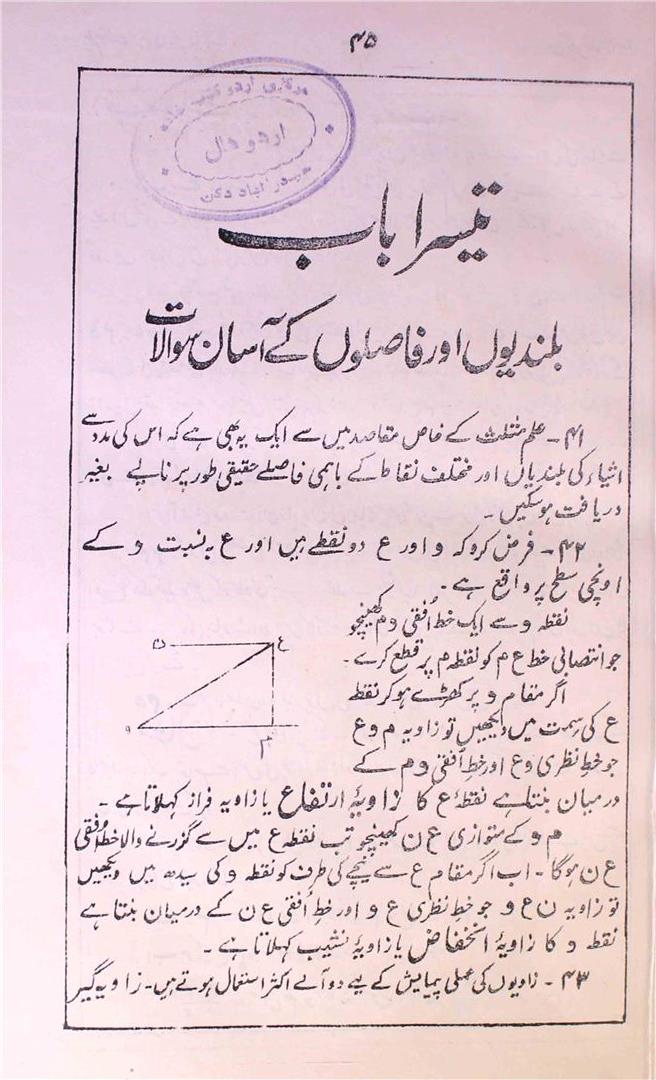 ۴۵
اردو ہال
حیدرآباد دکن
تیسرا باب
بلندیوں اور فاصلوں کے آسان سوالات
۴۱ - علم مثلث کے خاص مقاصد میں سے ایک یہ بھی ہے کہ اس کی مدد سے
اشیاء کی بلندیاں اور مختلف نقاط کے باہمی فاصلے حقیقی طور پر ناپے بغیر
دریافت ہو سکیں -
۴۲ - فرض کرو کہ و اور ع دو نقطے ہیں اور ع بہ نسبت و کے
اونچی سطح پر واقع ہے -
نقطہ و سے ایک خط اُفقی و م کھینچو
جو انتصابی خط ع م کو نقطہ م پر قطع کرے -
اگر مقام و پر کھڑے ہو کر نقطہ
ع کی سمت میں دیکھیں تو زاویہ م و ع
جو خطِ نظری و ع اور خطِ اُفقی و م کے
درمیان بنتا ہے نقطۂ ع کا زاویۂ ارتفاع یا زاویہ فراز کہلاتا ہے -
ن ع
و م
م و کے متوازی ع ن کھینچو تب نقطہ ع میں سے گزرنے والا خط اُفقی
ع ن ہوگا - اب اگر مقام ع سے نیچے کی طرف کو نقطہ و کی سیدھ میں دیکھیں
تو زاویہ ن ع و جو خطِ نظری ع و اور خطِ اُفقی ع ن کے درمیان بنتا ہے
نقطہ و کا زاویۂ انخفاض یا زاویۂ نشیب کہلاتا ہے -
۴۳ - زاویوں کی عملی پیمایش کے لیے دو آلے اکثر استعمال ہوتے ہیں - زاویہ گیر